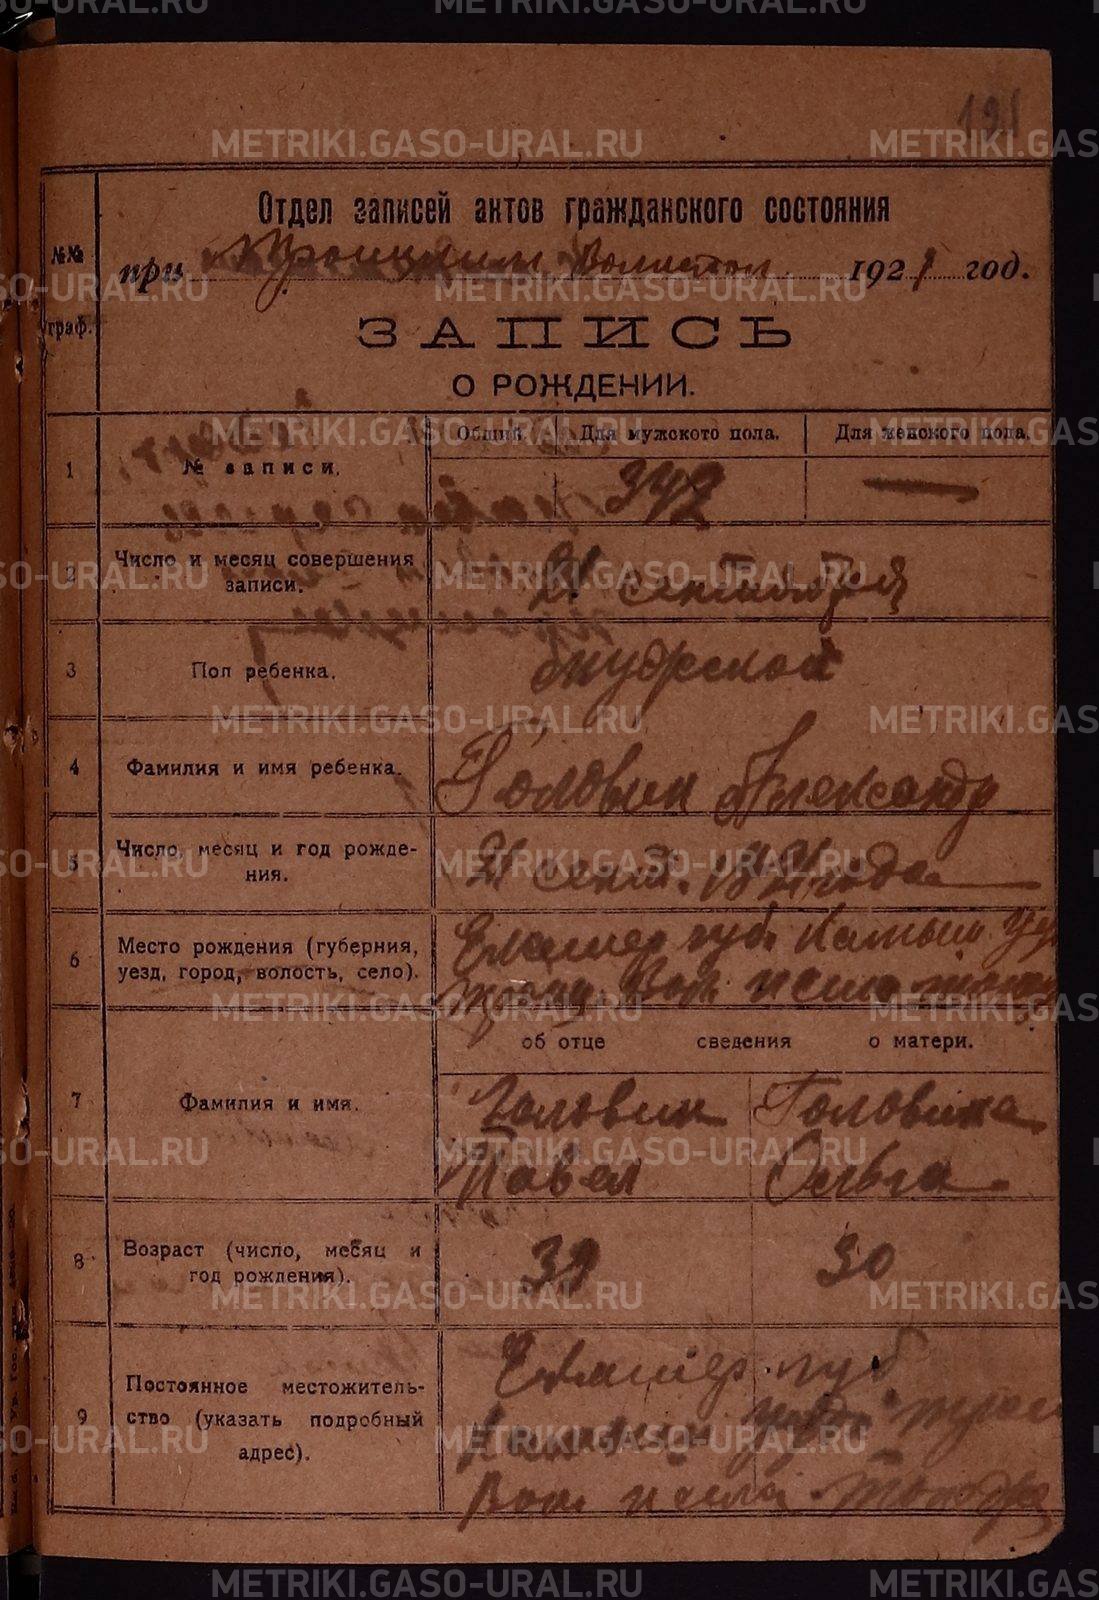 191
Отдел записей актов гражданского состояния
при Троицким Волистом 1921 год.
№№ граф.
ЗАПИСЬ
О РОЖДЕНИИ.
Общий. Для мужского пола. Для женского пола.
1 № записи. 342 —
2 Число и месяц совершения записи. 21 сентября
3 Пол ребенка. мужской
4 Фамилия и имя ребенка. Головин Александр
5 Число, месяц и год рождения. 21 сент. 1921 года
6 Место рождения (губерния, уезд, город, волость, село). губ. Камышл. у
Троиц. Вол. и села того
об отце сведения о матери.
7 Фамилия и имя. Головин Головина
Павел Ольга
8 Возраст (число, месяц и год рождения). 39 30
9 Постоянное местожительство (указать подробный адрес). губ
Вол. и села
METRIKI.GASO-URAL.RU